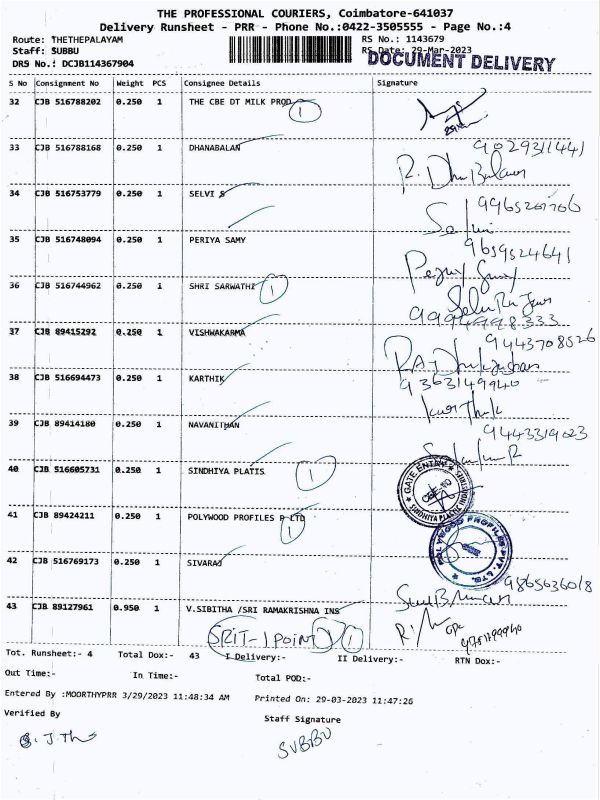 THE PROFESSIONAL COURIERS, Coimbatore-641037
Delivery Runsheet - PRR - Phone No.:0422-3505555 - Page No.:4
Route: THETHEPALAYAM
RS No.: 1143679
Staff: SUBBU
RS Date: 29-Mar-2023
DRS No.: DCJB114367904
DOCUMENT DELIVERY
S No Consignment No Weight PCS Consignee Details Signature
32 CJB 516788202 0.250 1 THE CBE DT MILK PROD 1
33 CJB 516788168 0.250 1 DHANABALAN 9029311441
34 CJB 516753779 0.250 1 SELVI S
35 CJB 516748094 0.250 1 PERIYA SAMY 9659524641
36 CJB 516744962 0.250 1 SHRI SARWATHI 1
37 CJB 89415292 0.250 1 VISHWAKARMA 9443708526
38 CJB 516694473 0.250 1 KARTHIK 9363149940
39 CJB 89414180 0.250 1 NAVANITHAN 9443319023
40 CJB 516605731 0.250 1 SINDHIYA PLATIS 1
GATE ENTRY
41 CJB 89424211 0.250 1 POLYWOOD PROFILES P LTD 1
POLYWOOD PROFILES PVT. LTD.
42 CJB 516769173 0.250 1 SIVARAJ 9865636018
43 CJB 89127961 0.950 1 V.SIBITHA /SRI RAMAKRISHNA INS
SRIT-1 POINT 1
Tot. Runsheet:- 4 Total Dox:- 43 I Delivery:- II Delivery:- RTN Dox:-
Out Time:- In Time:- Total POD:-
Entered By :MOORTHYPRR 3/29/2023 11:48:34 AM Printed On: 29-03-2023 11:47:26
Verified By Staff Signature
SUBBU